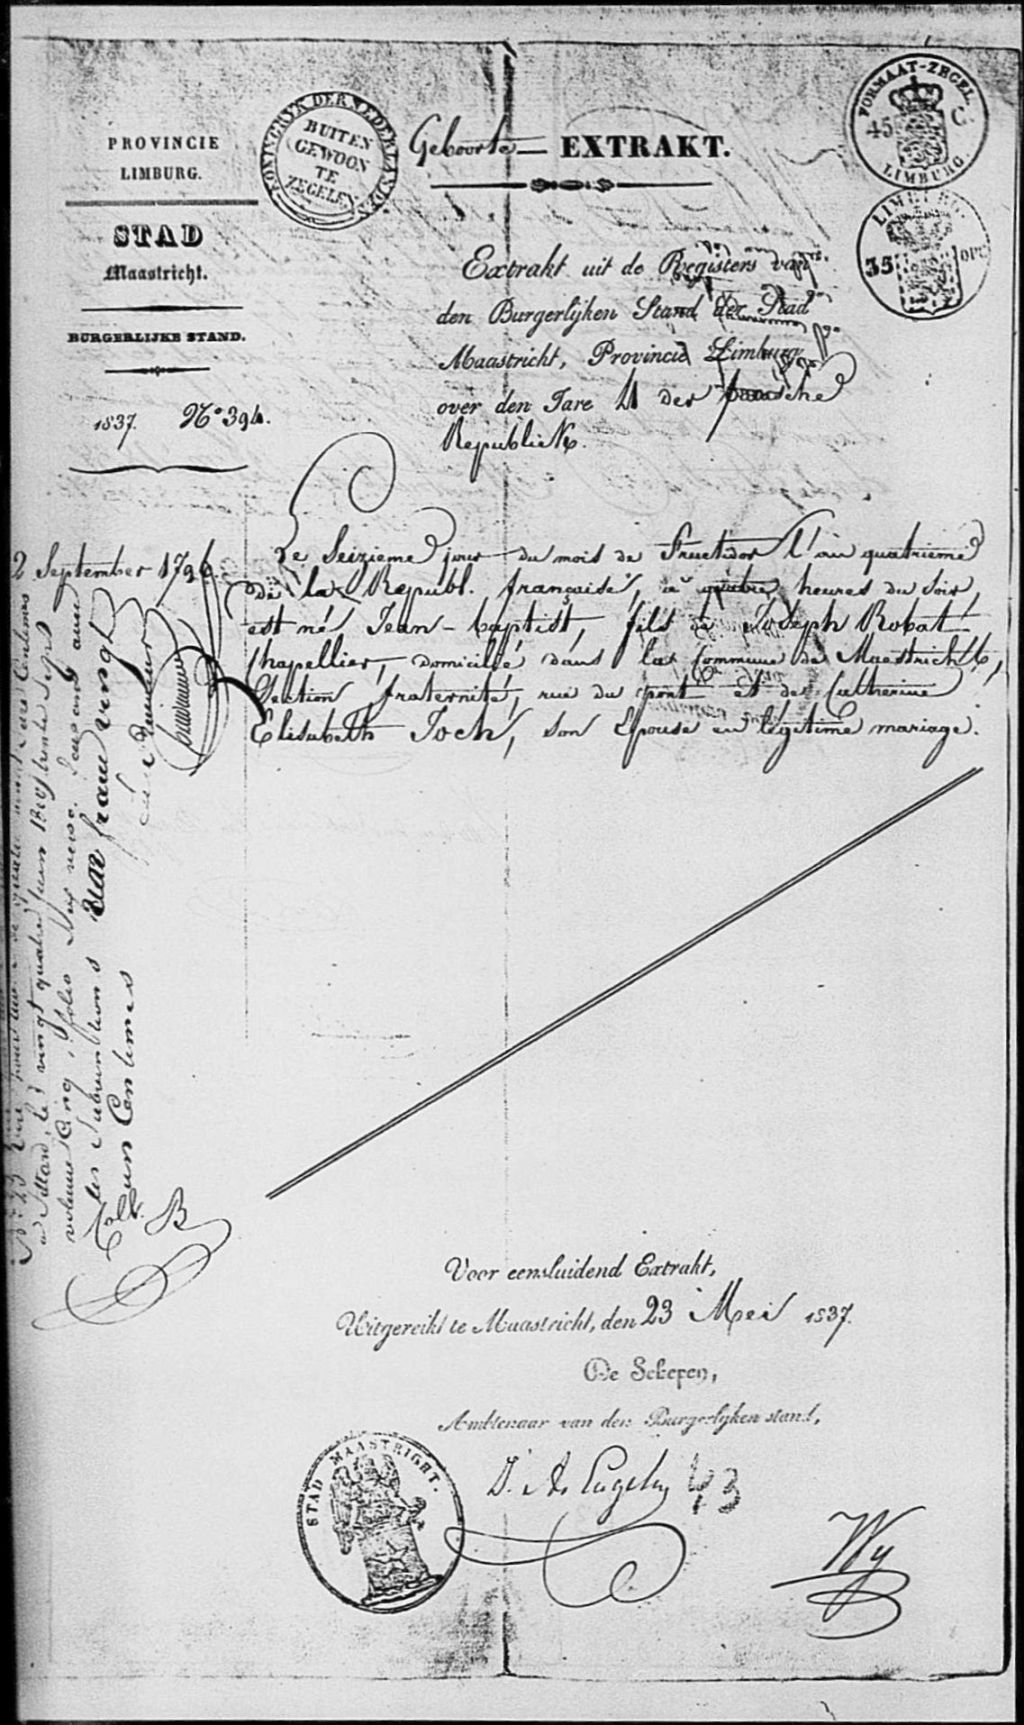 PROVINCIE
LIMBURG.
STAD
Maastricht.
BURGERLIJKE STAND.
1837. No. 394.
KONINGRYK DER NEDERLANDEN
BUITEN
GEWOON
TE
ZEGELEN
Geboorte — EXTRAKT.
FORMAAT-ZEGEL.
45 C.
LIMBURG.
LIMBURG.
35
Extrakt uit de Registers van
den Burgerlijken Stand der Stad
Maastricht, Provincie Limburg
over den Jare 4 der fransche
Republiek.
2 September 1796.
Le Seizieme jour du mois de Fructidor l'an quatrieme
de la Republ. française, à quatre heures du Soir,
est né Jean-baptist, fils de Joseph Robat
Chapellier, domicilié dans la Commune de Maestricht,
Section fraternité, rue du pont et de Catherine
Elisabeth Joch, son Epouse en légitime mariage.
le vingt quatre juin 18 trente Sept
volume Cinq, folio
les Subventions un franc vingt
un Centimes
Voor eensluidend Extrakt,
Uitgereikt te Maastricht, den 23 Mei 1837.
De Schepen,
Ambtenaar van den Burgerlijken stand,
STAD MAASTRIGHT.